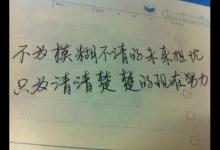 不为模糊不清的未来担忧
只为清清楚楚的现在努力